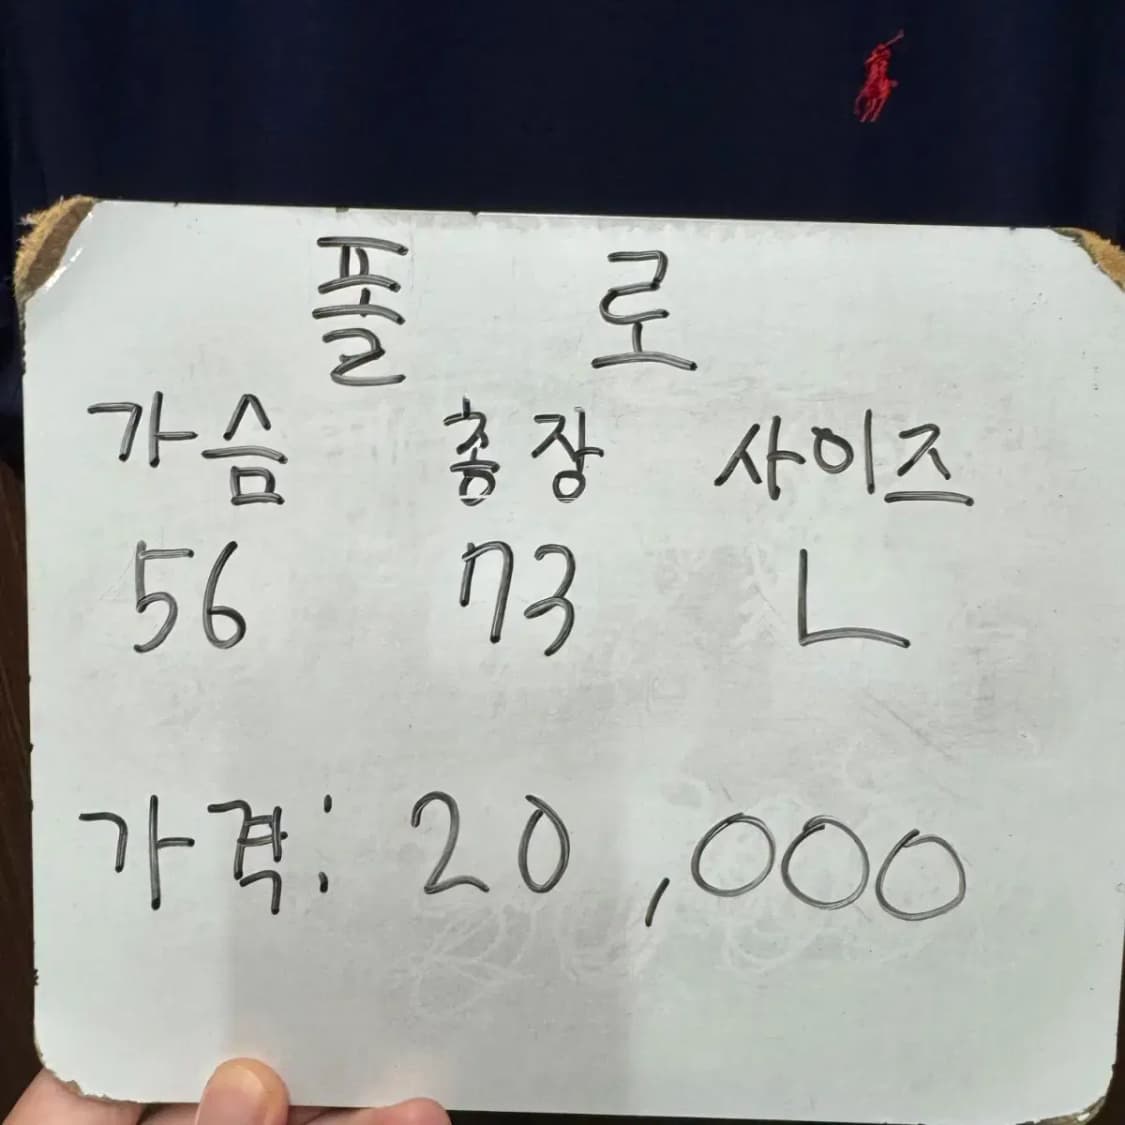 폴로
가슴 총장 사이즈
56 73 L
가격: 20,000